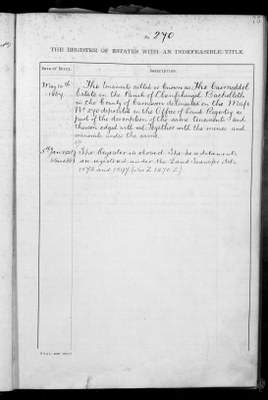 No. 270
THE REGISTER OF ESTATES WITH AN INDEFEASIBLE TITLE.
Date of Entry. Description.
May 10th The tenements called or known as The
1864 Estate in the Parish of
in the County of Carnarvon delineated on the Map
No 270 deposited in the Office of Land Registry as
part of the description of the same tenements and
thereon edged with red Together with the mines and
minerals under the same
The Register is closed. The hereditaments
are registered under the Land Transfer Acts
1875 and 1897